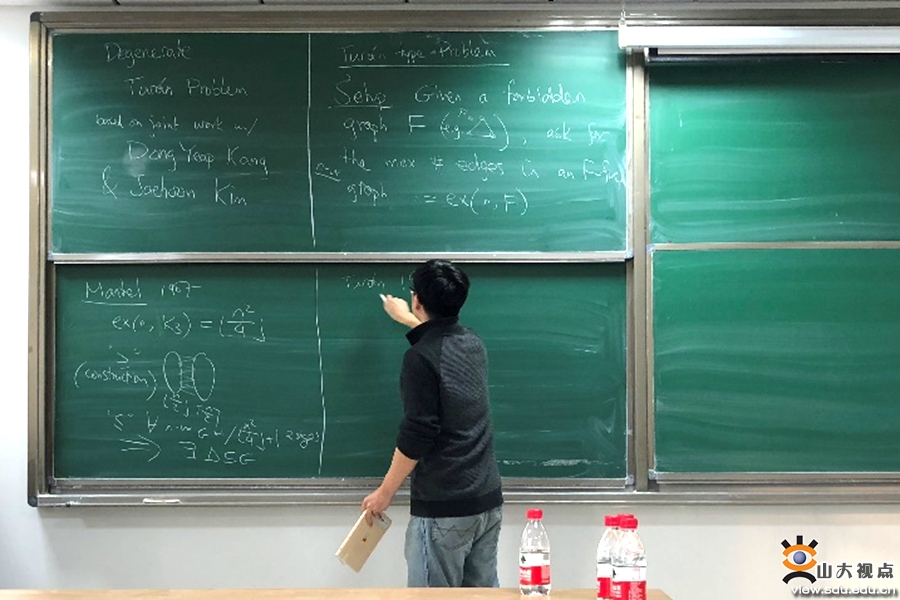 Degenerate
Turán Problem
based on joint work w/
Dong Yeap Kang
& Jaehoon Kim
Turán type Problem
Setup Given a forbidden
graph F (e.g. △), ask for
the max # edges in an F-free
n-vx graph = ex(n, F)
Mantel 1907
ex(n, K3) = ⌊n²/4⌋
"≥"
(construction)
⌊n/2⌋ ⌈n/2⌉
"≤" ∀ n-vx G w/ ⌊n²/4⌋+1 edges
⟹ ∃ △⊆G
Turán 1
山大视点
view.sdu.edu.cn